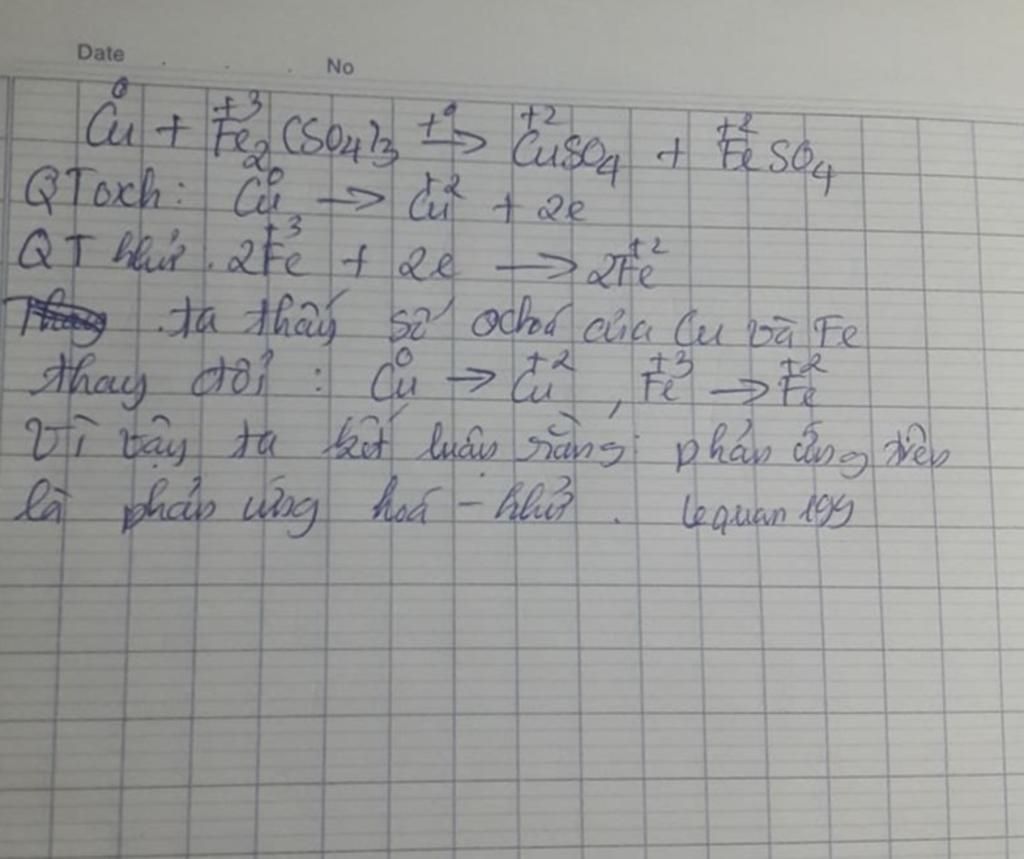 Date . . . No
Cu⁰ + Fe₂⁺³(SO₄)₃ t⁰→ Cu⁺²SO₄ + Fe⁺²SO₄
QT oxh: Cu⁰ → Cu⁺² + 2e
QT khử. 2Fe⁺³ + 2e → 2Fe⁺²
ta thấy số oxhoá của Cu và Fe
thay đổi : Cu⁰ → Cu⁺² , Fe⁺³ → Fe⁺²
Vì vậy ta kết luận rằng phản ứng trên
là phản ứng hoá - khử . lequan199